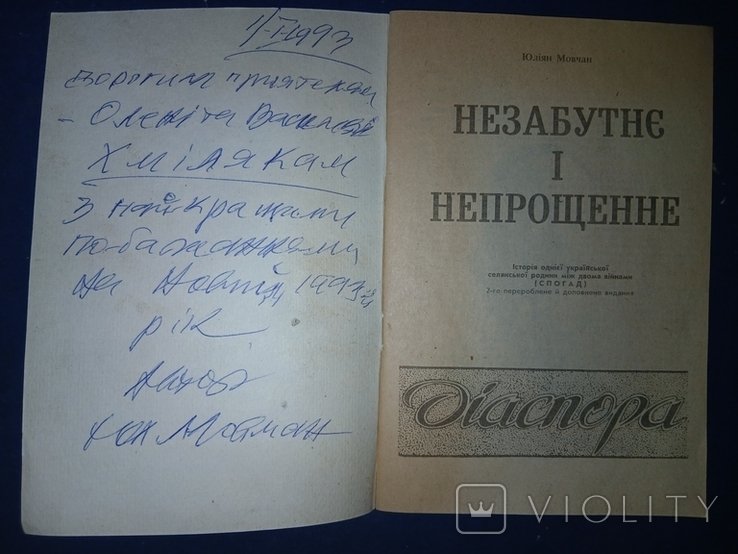 1/I-1993
Дорогим приятелям
- Олені та Василеві
Хмілякам
З найкращими
побажаннями
на Новий 1993-й
рік
Автор
Юл Мовчан
Юліян Мовчан
НЕЗАБУТНЄ
І
НЕПРОЩЕННЕ
Історія однієї української
селянської родини між двома війнами
(СПОГАД)
2-ге перероблене й доповнене видання
Діаспора
VIOLITY